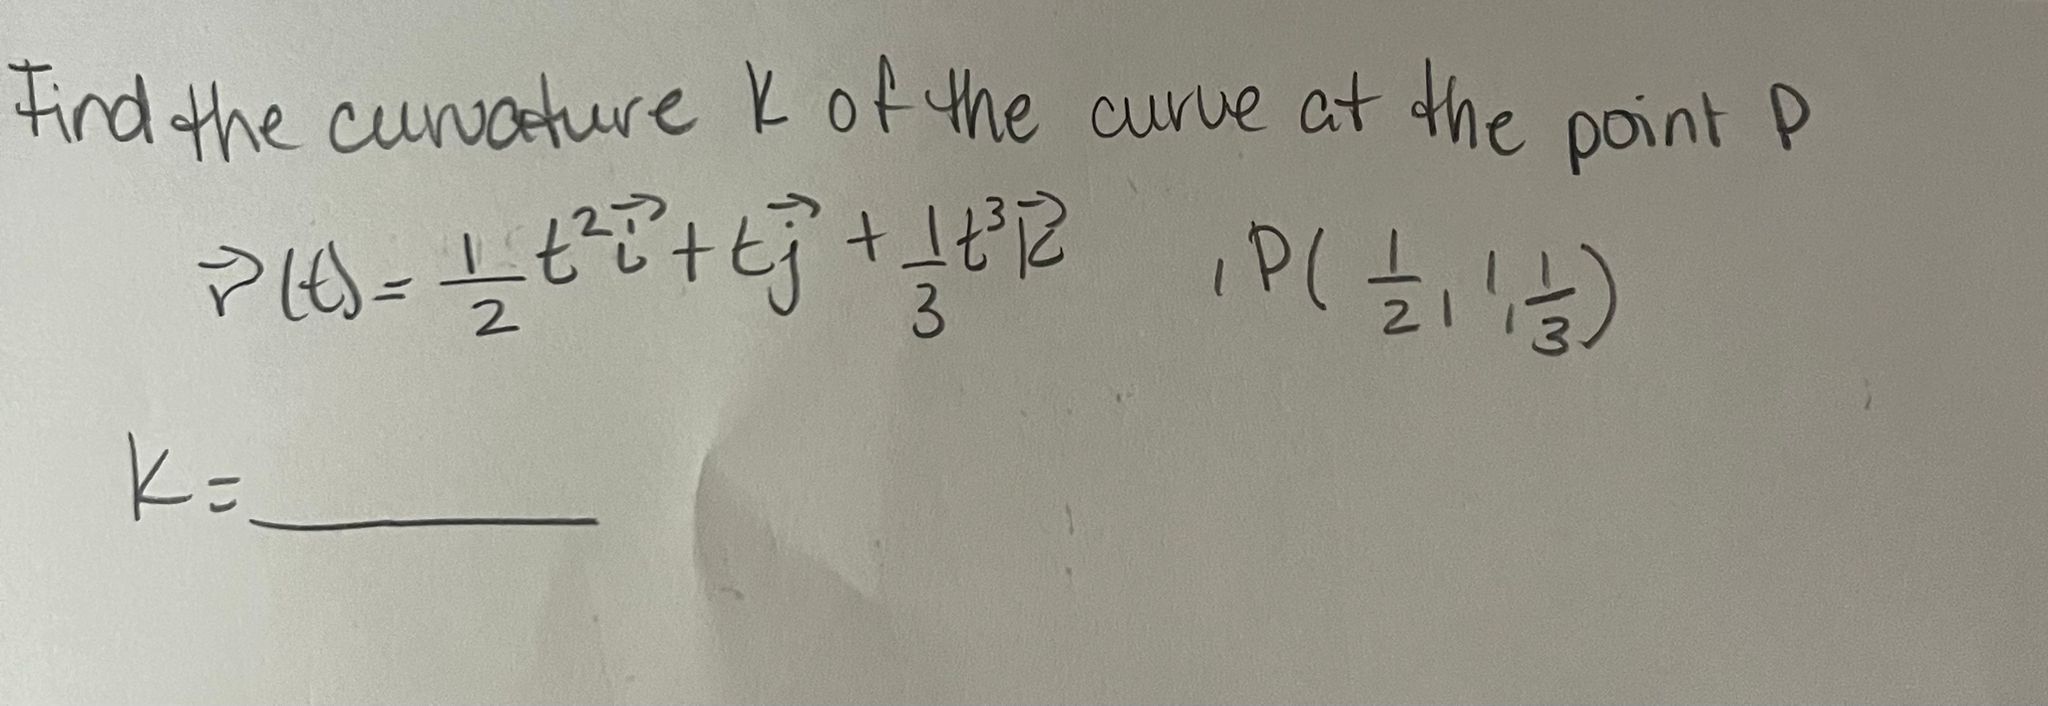 Find the curvature K of the curve at the point P
r⃗(t) = 1/2 t² i⃗ + t j⃗ + 1/3 t³ k⃗ , P(1/2, 1, 1/3)
K = ______